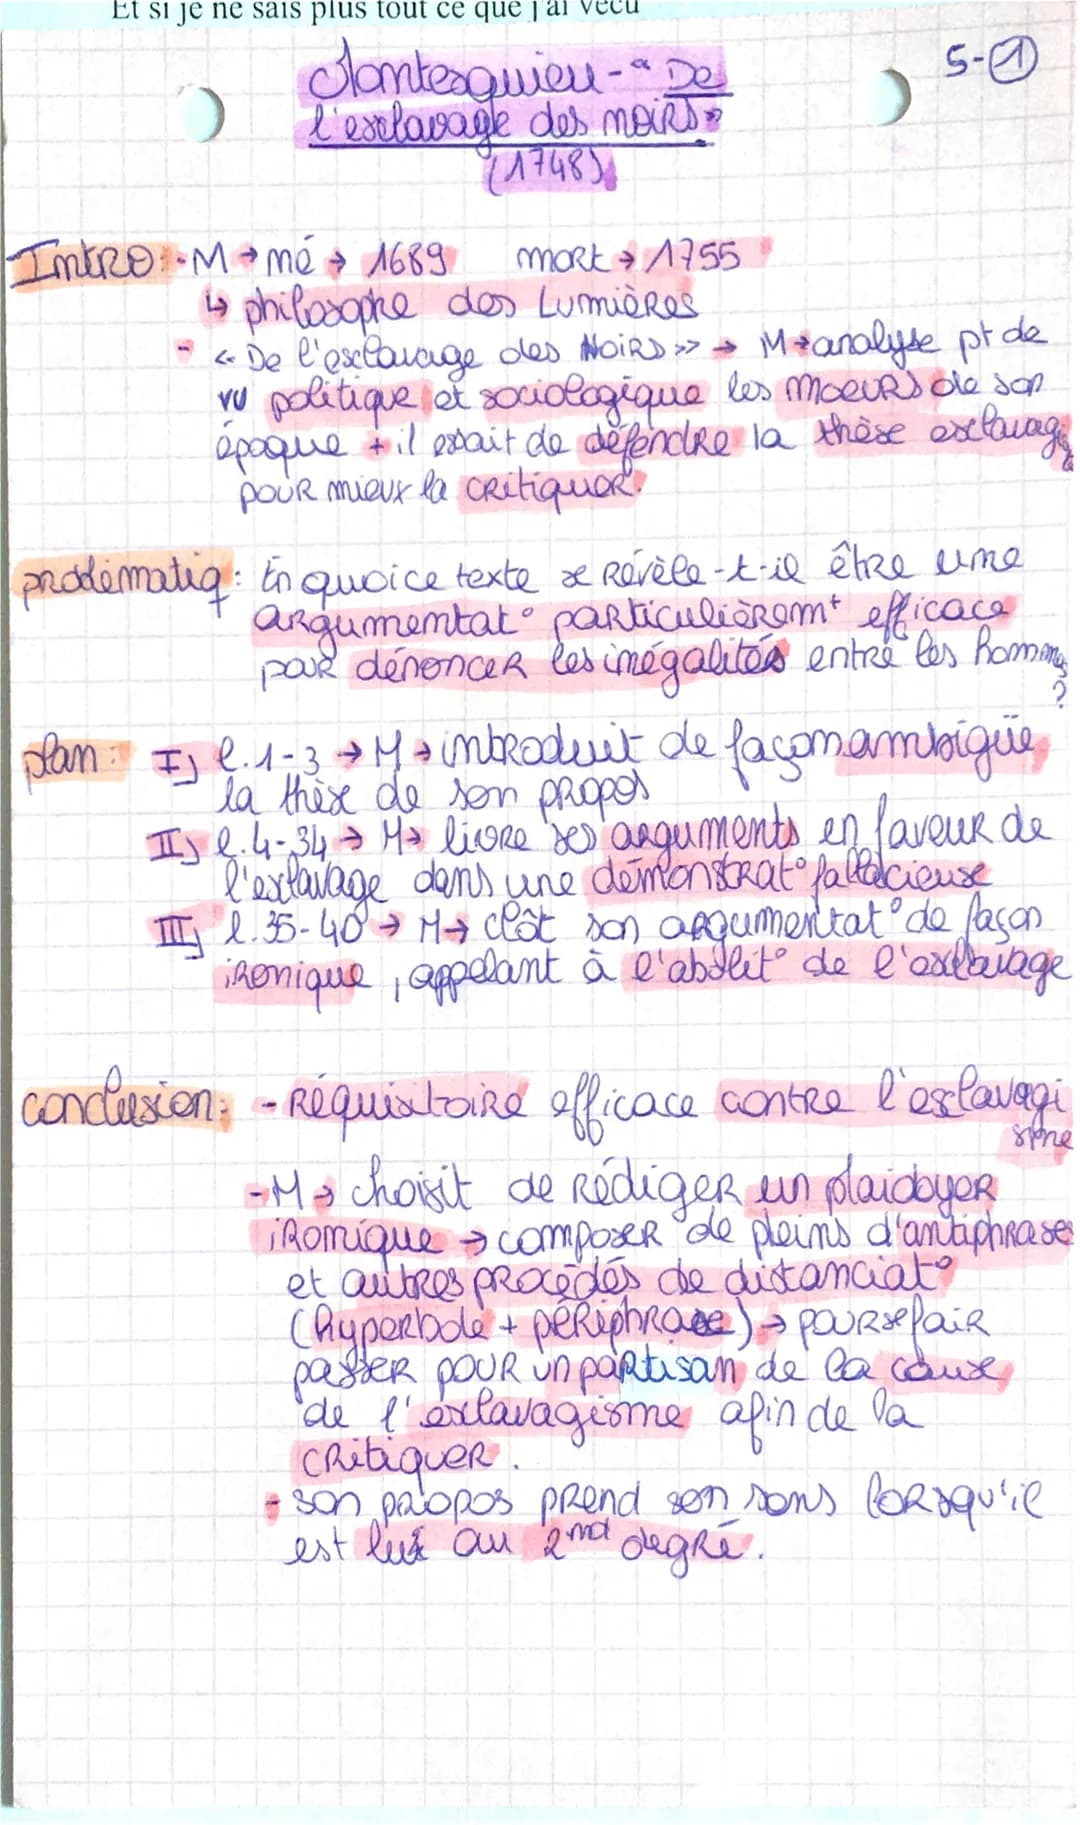 Et si je ne sais plus tout ce que j'ai vécu
S-①
Montesquieu - " De
l'esclavage des noirs"
(1748)
Intro: - M → né → 1689 mort → 1755
↳ philosophe des Lumières
- « De l'esclavage des Noirs » → M → analyse pt de
vu politique et sociologique les moeurs de son
époque + il essait de défendre la thèse esclavagis
pour mieux la critiquer.
problématiq: En quoi ce texte se révèle-t-il être une
argumentat° particulièrem^t efficace
pour dénoncer les inégalités entre les hommes
?
plan: I) l.1-3 → M → introduit de façon ambigüe
la thèse de son propos
II) l.4-34 → M → livre ses arguments en faveur de
l'esclavage dans une démonstrat° fallacieuse
III) l.35-40 → M → clôt son argumentat° de façon
ironique, appelant à l'abolit° de l'esclavage
conclusion: - Réquisitoire efficace contre l'esclavagi
sme
- M → choisit de rédiger un plaidoyer
ironique → composer de pleins d'antiphrases
et autres procédés de distanciat°
(hyperbole + périphrase) → pour se fair
passer pour un partisan de la cause
de l'esclavagisme afin de la
critiquer.
- son propos prend son sens lorsqu'il
est lu au 2nd degré.